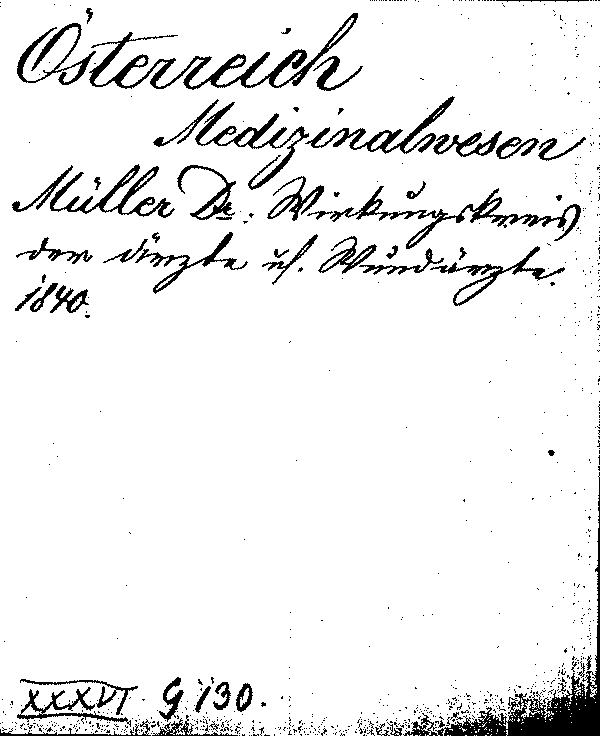 Österreich
Medizinalwesen
Müller Dr. Wirkungskreis
der ärzte u. Wundärzte.
1840.
XXXVI G 130.